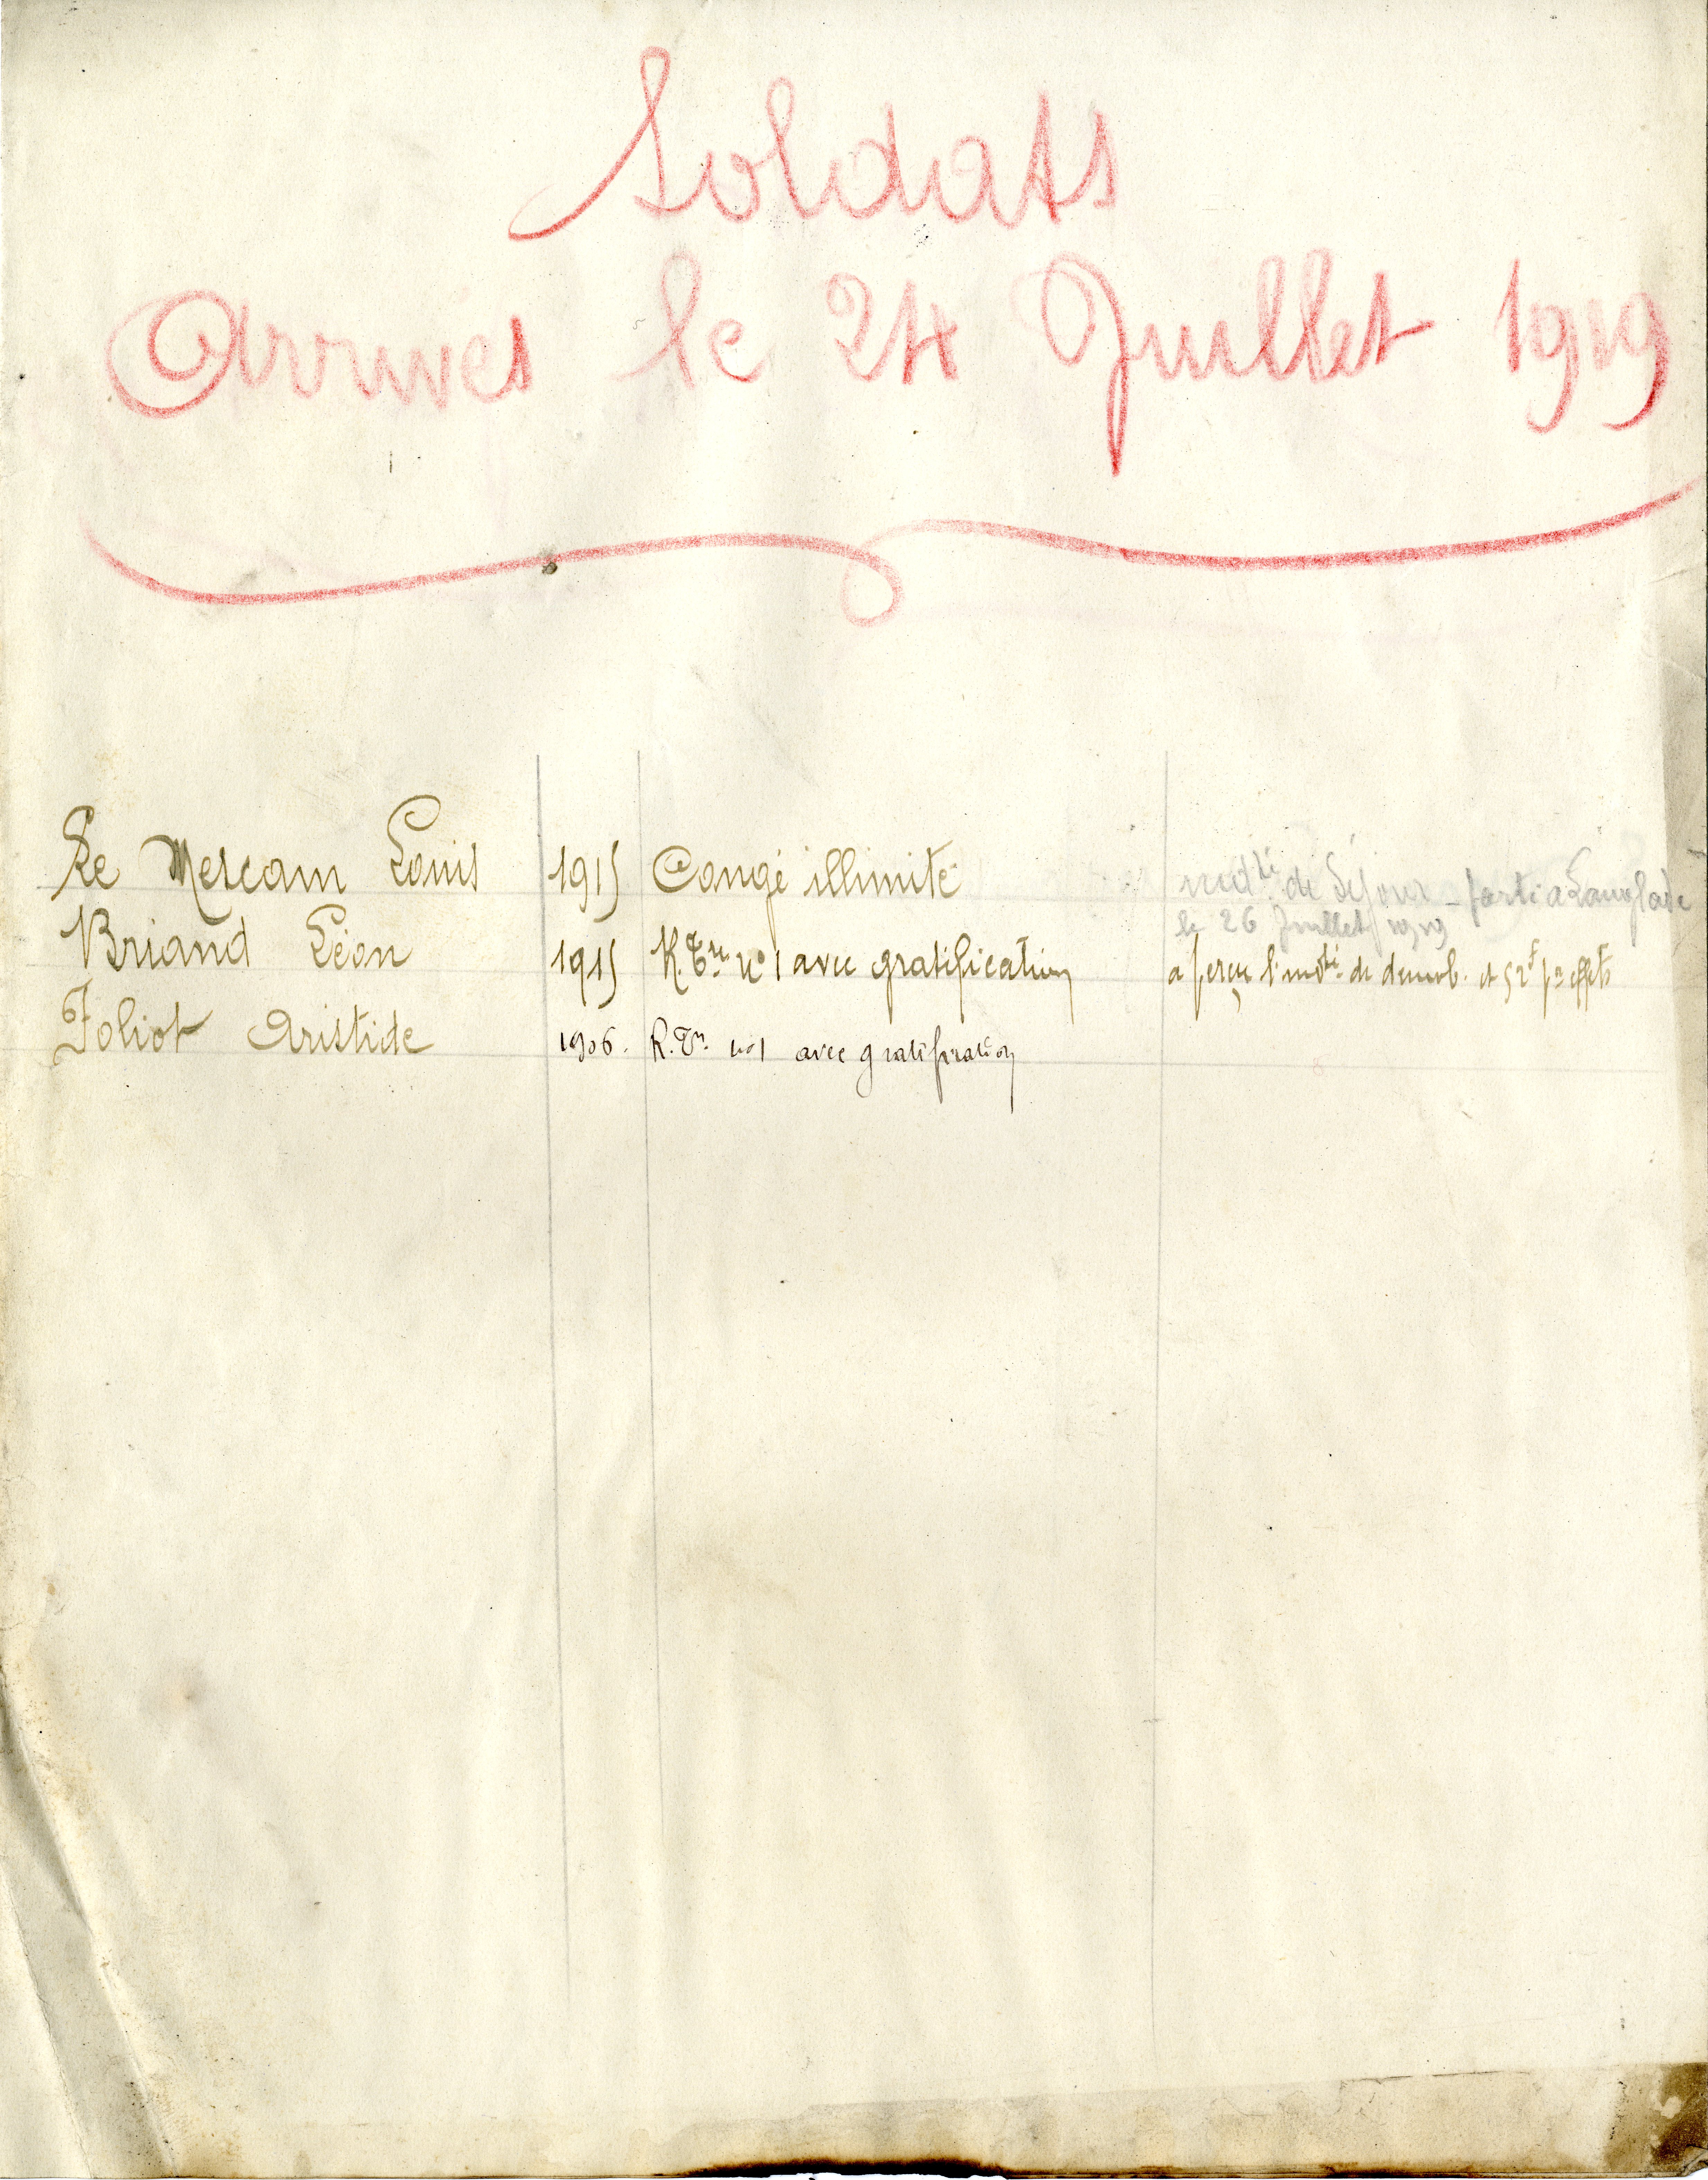 Soldats
Arrivés le 24 Juillet 1919
Le Mescam Louis 1915 Congé illimité indté de Séjour - parti a Langlade
le 26 Juillet 1919
Briand Léon 1915 R.Tre no 1 avec gratification a perçu l'indté de démob. et 52f pr effets
Foliot Aristide 1906. R.Tre no 1 avec gratification